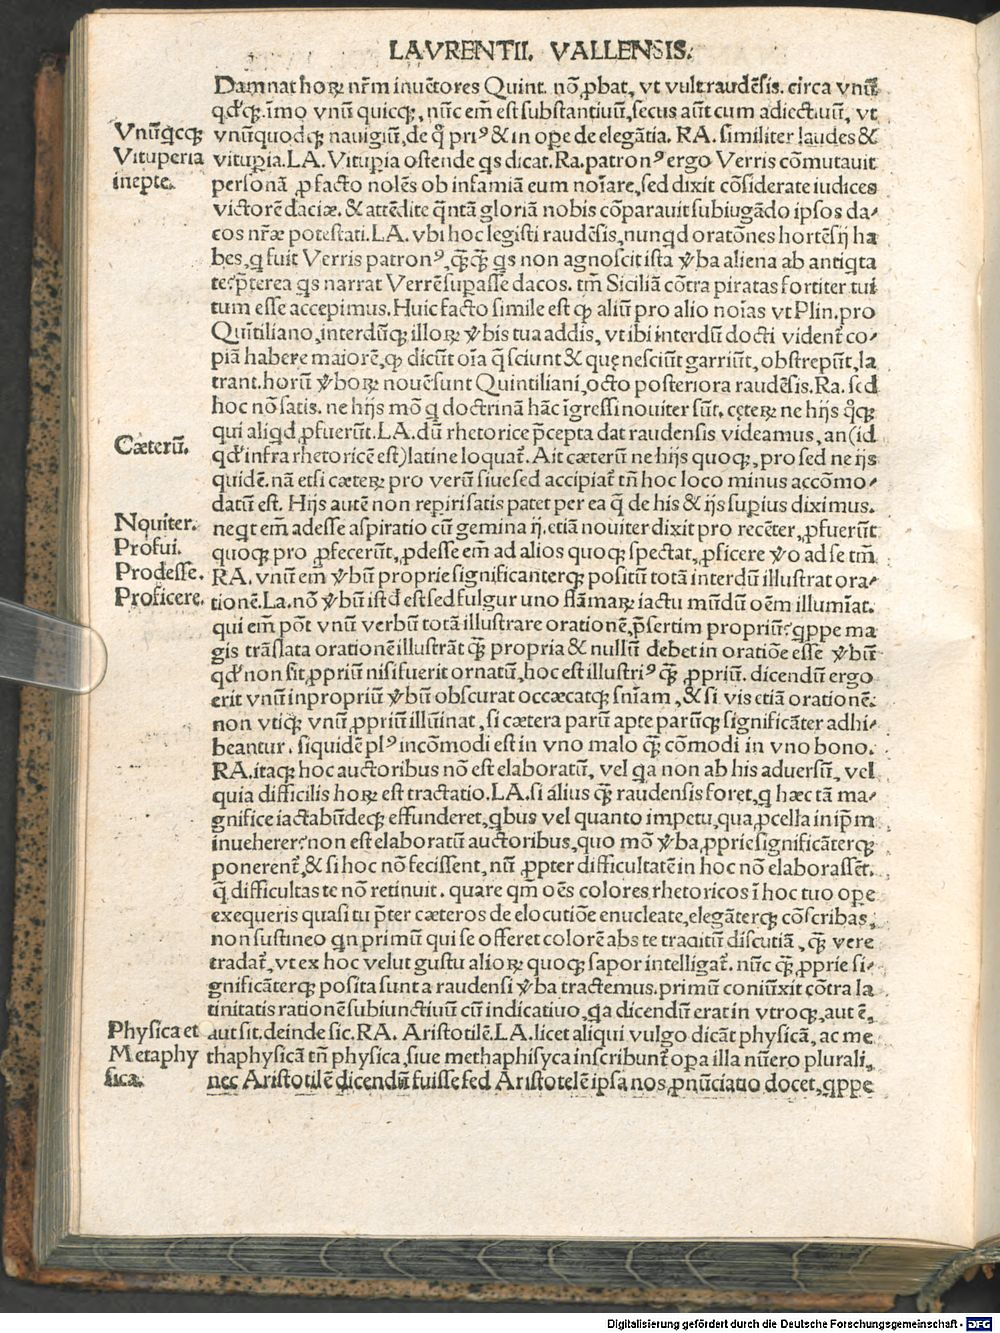 LAVRENTII. VALLENSIS.
Damnat hoꝝ nr̃m inuẽtores Quint. nõ ꝓbat, vt vult raudẽsis. circa vnũ
qđ꞊q̃. imo vnũ quicq̃, nũc em̃ est substantiuũ, secus aũt cum adiectiuũ, vt
Vnũqcq̃ vnũquodq̃ nauigiũ, de q̃ priꝰ & in oꝑe de elegãtia. RA. similiter laudes &
Vituperia vituꝑia. LA. Vituꝑia ostende qs dicat. Ra. patronꝰ ergo Verris cõmutauit
inepte. personã ꝓ facto nolẽs ob infamiã eum noĩare, sed dixit cõsiderate iudices
victorẽ daciæ. & attẽdite q̃ntã gloriã nobis cõparauit subiugãdo ipsos da⸗
cos nr̃æ potestati. LA. vbi hoc legisti raudẽsis, nunqd oratões hortẽsij ha
bes, q fuit Verris patronꝰ, q̃q̃ qs non agnoscit ista v̾ba aliena ab antiqta
te: p̃terea qs narrat Verrẽ suꝑasse dacos. tm̃ Siciliã cõtra piratas fortiter tui
tum esse accepimus. Huic facto simile est ꝙ aliũ pro alio noĩas vt Plin. pro
Quĩtiliano, interdũq̃ illoꝝ v̾bis tua addis, vt ibi interdũ docti vident̃ co⸗
piã habere maiorẽ, ꝙ dicũt oĩa q̃ sciunt & quę nesciũt garriũt, obstrepũt, la
trant. horũ v̾boꝝ nouẽ sunt Quintiliani, octo posteriora raudẽsis. Ra. sed
hoc nõ satis. ne hijs mõ q doctrinã hãc ĩgressi nouiter sũt. cęteꝝ ne hijs q̊q̃
qui aliqd ꝓfuerũt. LA. dũ rhetorice p̃cepta dat raudensis videamus, an (id
Cæterũ. qđ infra rhetoricẽ est) latine loquat̃. Ait cæterũ ne hijs quoq̃, pro sed ne ijs
quidẽ. nã etsi cæteꝝ pro verũ siue sed accipiat̃ tñ hoc loco minus accõmo⸗
datũ est. Hijs autẽ non reꝑiri satis patet per ea q̃ de his & ijs suꝑius diximus.
Nouiter. neqt em̃ adesse aspiratio cũ gemina ij. etiã nouiter dixit pro recẽter, ꝓfuerũt
Profui. quoq̃ pro ꝓfecerũt, ꝓdesse em̃ ad alios quoq̃ spectat, ꝓficere v̾o ad se tm̃
Prodesse. RA. vnũ em̃ v̾bũ proprie significanterq̃ positũ totã interdũ illustrat ora⸗
Proficere. tionẽ. La. nõ v̾bũ istđ est sed fulgur uno flãmaꝝ iactu mũdũ oẽm illumĩat.
qui em̃ põt vnũ verbũ totã illustrare orationẽ, p̃sertim propriũ: qppe ma
gis trãslata orationẽ illustrãt q̃ propria & nullũ debet in oratiõe esse v̾bũ
qđ non sit ꝓpriũ nisi fuerit ornatũ, hoc est illustriꝰ q̃ ꝓpriũ. dicendũ ergo
erit vnũ inpropriũ v̾bũ obscurat occæcatq̃ sñiam, & si vis etiã orationẽ:
non vtiq̃ vnũ ꝓpriũ illũinat, si cætera parũ apte parũq̃ significãter adhi⸗
beantur. siquidẽ plꝰ incõmodi est in vno malo q̃ cõmodi in vno bono.
RA. itaq̃ hoc auctoribus nõ est elaboratũ, vel qa non ab his aduersũ, vel
quia difficilis hoꝝ est tractatio. LA. si alius q̃ raudensis foret, q hæc tã ma⸗
gnifice iactabũdeq̃ effunderet, qbus vel quanto impetu, qua ꝓcella in ip̃m
inueherer: non est elaboratũ auctoribus, quo mõ v̾ba ꝓprie significãterq̃
ponerent̃, & si hoc nõ fecissent, nũ ꝓpter difficultatẽ in hoc nõ elaborassẽt.
q̃ difficultas te nõ retinuit. quare qm̃ oẽs colores rhetoricos ĩ hoc tuo oꝑe
exequeris quasi tu p̃ter cæteros de elocutiõe enucleate, elegãterq̃ cõscribas,
non sustineo qn primũ qui se offeret colorẽ abs te traditũ discutiã, q̃ vere
tradat̃, vt ex hoc velut gustu alioꝝ quoq̃ sapor intelligat̃. nũc q̃ ꝓprie si⸗
gnificãterq̃ posita sunt a raudensi v̾ba tractemus. primũ coniũxit cõtra la
tinitatis rationẽ subiunctiuũ cũ indicatiuo, qa dicendũ erat in vtroq̃, aut ẽ,
Physica et aut sit. deinde sic. RA. Aristotilẽ. LA. licet aliqui vulgo dicãt physicã, ac me
Metaphy thaphysicã tñ physica, siue methaphisyca inscribunt̃ oꝑa illa nũero plurali,
sica. nec Aristotilẽ dicendũ fuisse sed Aristotelẽ ipsa nos ꝓnũciatio docet, qppe
Digitalisierung gefördert durch die Deutsche Forschungsgemeinschaft - DFG